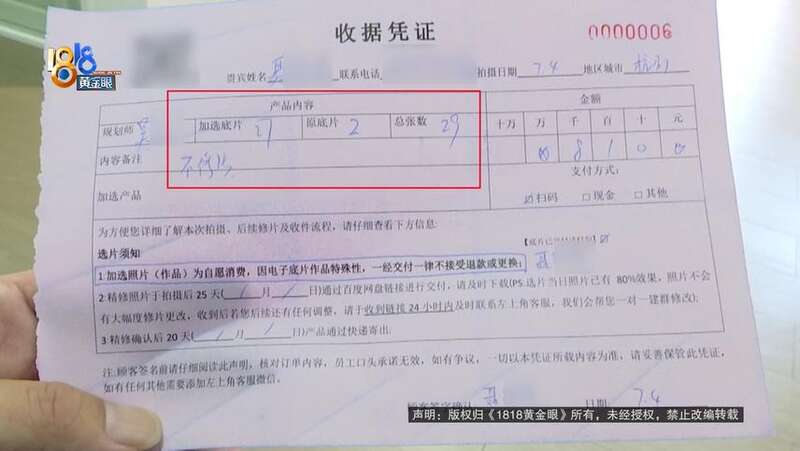 1818
黄金眼
收据凭证
0000006
贵宾姓名 联系电话 拍摄日期 7.4 地区城市 杭州
产品内容 金额
规划师 加选底片 27 原底片 2 总张数 29 十万 万 千 百 十 元
内容备注 不修片 0 8 1 0 0
加选产品 支付方式:
☑扫码 □现金 □其他
为方便您详细了解本次拍摄、后续修片及收件流程，请仔细查看下方信息:
选片须知
1:加选照片（作品）为自愿消费，因电子底片作品特殊性，一经交付一律不接受退款或更换;
2:精修照片于拍摄后 25 天( / 月 / 日)通过百度网盘链接进行交付，请及时下载(PS.选片当日照片已有 80%效果，照片不会
有大幅度修片更改，收到后若您后续还有任何调整，请于收到链接 24 小时内及时联系左上角客服，我们会帮您一对一建群修改);
3:精修确认后 20 天( / 月 / 日)产品通过快递寄出.
注:顾客签名前请仔细阅读此声明，核对订单内容，员工口头承诺无效，如有争议，一切以本凭证所载内容为准，请妥善保管此凭证，
如有任何其他需要添加左上角客服微信。
顾客签字确认 日期 7.4
声明：版权归《1818黄金眼》所有，未经授权，禁止改编转载